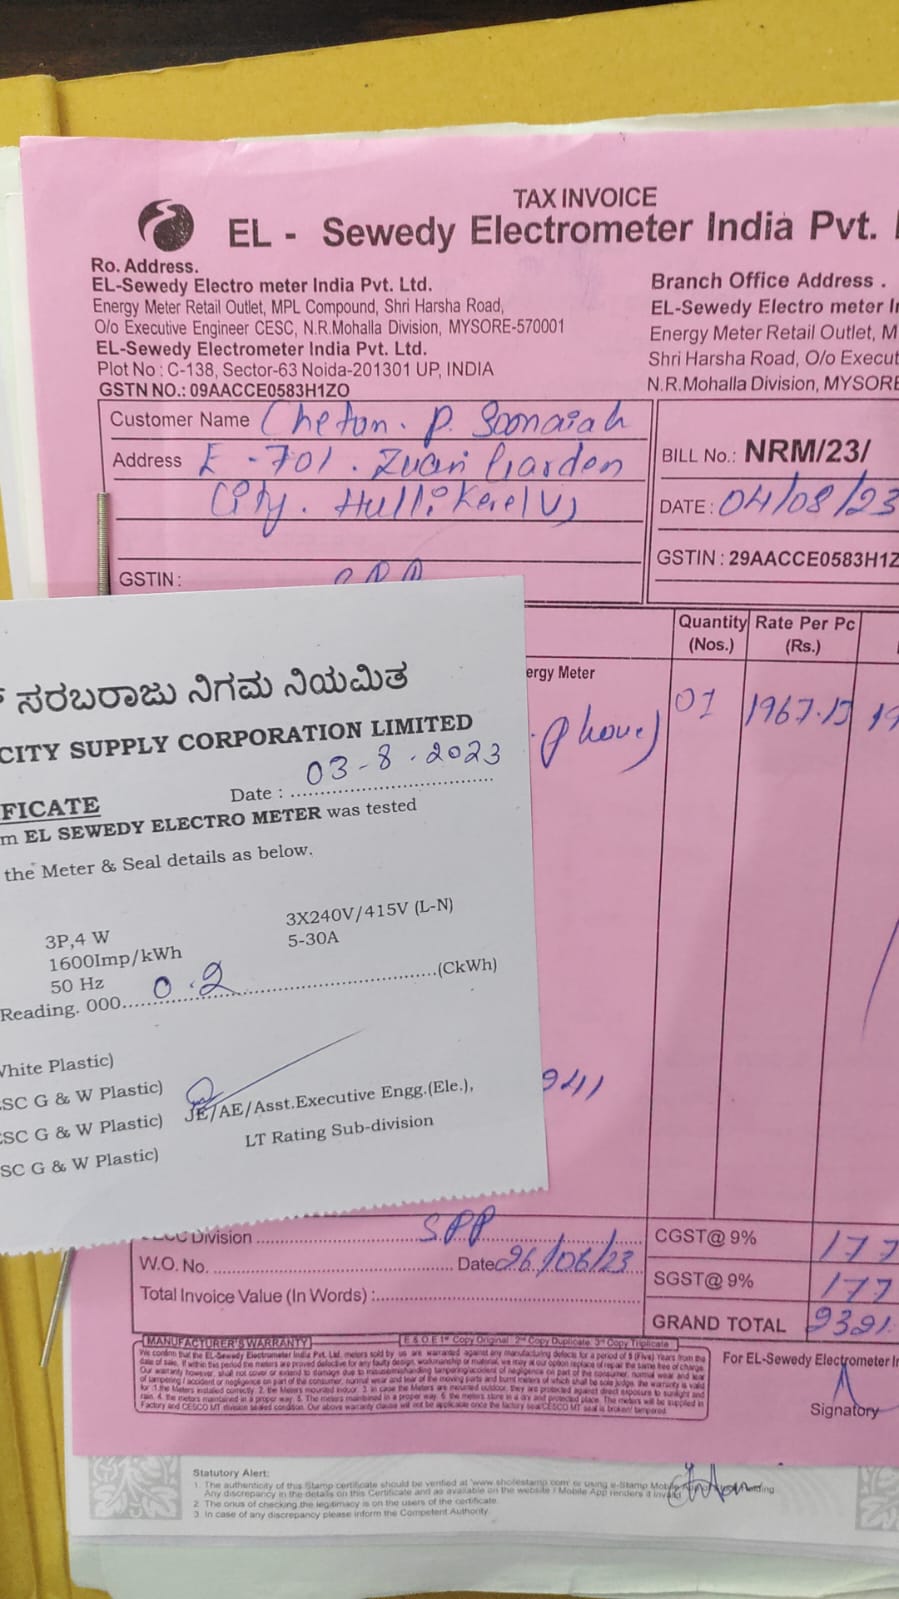 TAX INVOICE
EL - Sewedy Electrometer India Pvt.
Ro. Address.
EL-Sewedy Electro meter India Pvt. Ltd.
Energy Meter Retail Outlet, MPL Compound, Shri Harsha Road,
O/o Executive Engineer CESC, N.R.Mohalla Division, MYSORE-570001
EL-Sewedy Electrometer India Pvt. Ltd.
Plot No : C-138, Sector-63 Noida-201301 UP, INDIA
GSTN NO.: 09AACCE0583H1ZO
Branch Office Address .
EL-Sewedy Electro meter
Energy Meter Retail Outlet, M
Shri Harsha Road, O/o Execut
N.R.Mohalla Division, MYSORE
Customer Name Chetan. P. Soonaiah
Address E-701. Zuari Garden
City. Hullikere(V)
GSTIN :
BILL No.: NRM/23/
DATE : 04/08/23
GSTIN : 29AACCE0583H1Z
Quantity (Nos.) Rate Per Pc (Rs.)
ergy Meter
01 1967.15 19
941
ಸರಬರಾಜು ನಿಗಮ ನಿಯಮಿತ
CITY SUPPLY CORPORATION LIMITED
FICATE Date : 03-8-2023
m EL SEWEDY ELECTRO METER was tested
the Meter & Seal details as below.
3P,4 W 3X240V/415V (L-N)
1600Imp/kWh 5-30A
50 Hz
Reading. 000 0.2 (CkWh)
White Plastic)
SC G & W Plastic)
SC G & W Plastic)
SC G & W Plastic)
JE/AE/Asst.Executive Engg.(Ele.),
LT Rating Sub-division
Division SPP
W.O. No. Date 26/06/23
Total Invoice Value (In Words) :
CGST@ 9% 177
SGST@ 9% 177
GRAND TOTAL 2321.
MANUFACTURER'S WARRANTY
E & O E 1st Copy Original 2nd Copy Duplicate 3rd Copy Triplicate
We confirm that the EL-Sewedy Electrometer India Pvt. Ltd. meters sold by us are warranted against any manufacturing defects for a period of 5 (Five) Years from the
date of sale. If within this period the meters are proved defective for any faulty design, workmanship or material, we may at our option replace or repair the same free of charge.
For EL-Sewedy Electrometer In
Signatory
Statutory Alert:
1. The authenticity of this Stamp certificate should be verified at 'www.shcilestamp.com' or using e-Stamp
Any discrepancy in the details on this Certificate and as available on the website / Mobile App renders it invalid
2. The onus of checking the legitimacy is on the users of the certificate.
3. In case of any discrepancy please inform the Competent Authority.